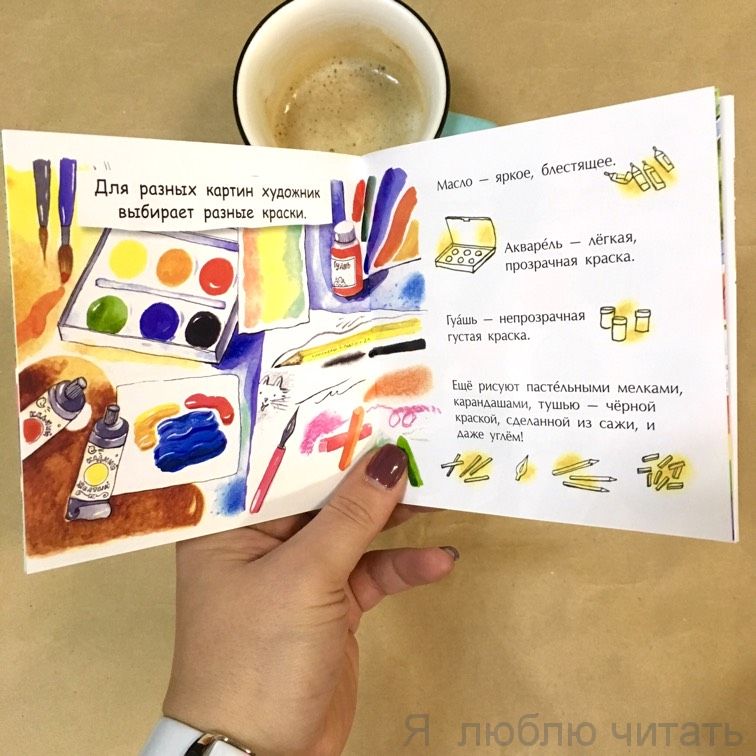 Для разных картин художник
выбирает разные краски.
Гуашь
Масло — яркое, блестящее.
Акваре́ль — лёгкая,
прозрачная краска.
Гуа́шь — непрозрачная
густая краска.
Ещё рисуют пасте́льными мелками,
карандашами, тушью — чёрной
краской, сделанной из сажи, и
даже углём!
Я люблю читать